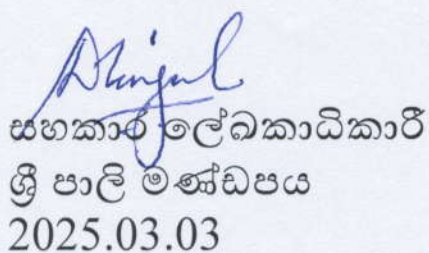 සහකාර ලේඛකාධිකාරී
ශ්‍රී පාලි මණ්ඩපය
2025.03.03